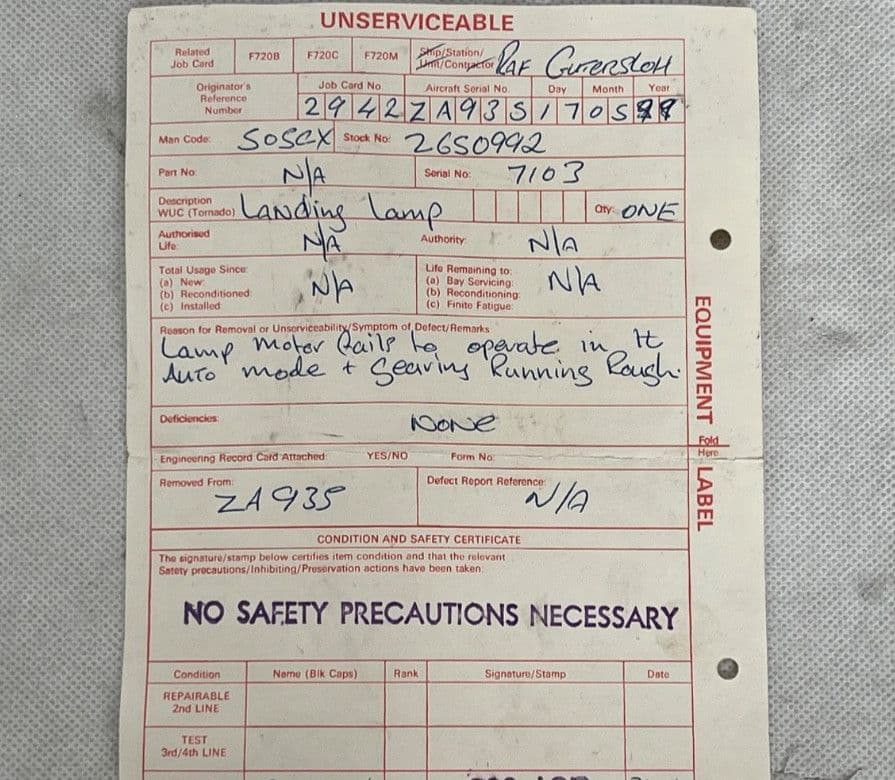 UNSERVICEABLE
Related Job Card F720B F720C F720M Ship/Station/ Unit/Contractor RAF GUTERSLOH
Originator's Reference Number
Job Card No Aircraft Serial No. Day Month Year
2942 ZA935 17 05
Man Code: 505CX Stock No: 2650992
Part No: N/A Serial No: 7103
Description WUC (Tornado) LANDING Lamp Qty: ONE
Authorised Life: N/A Authority: N/A
Total Usage Since: Life Remaining to:
(a) New: (a) Bay Servicing:
(b) Reconditioned: N/A (b) Reconditioning: N/A
(c) Installed: (c) Finite Fatigue:
Reason for Removal or Unserviceability/Symptom of Defect/Remarks
Lamp motor fails to operate in It
Auto mode + Gearing Running Rough.
Deficiencies: NONE
Engineering Record Card Attached: YES/NO Form No:
Removed From: ZA935 Defect Report Reference: N/A
CONDITION AND SAFETY CERTIFICATE
The signature/stamp below certifies item condition and that the relevant
Safety precautions/Inhibiting/Preservation actions have been taken:
NO SAFETY PRECAUTIONS NECESSARY
Condition Name (Blk Caps) Rank Signature/Stamp Date
REPAIRABLE
2nd LINE
TEST
3rd/4th LINE
EQUIPMENT Fold Here LABEL